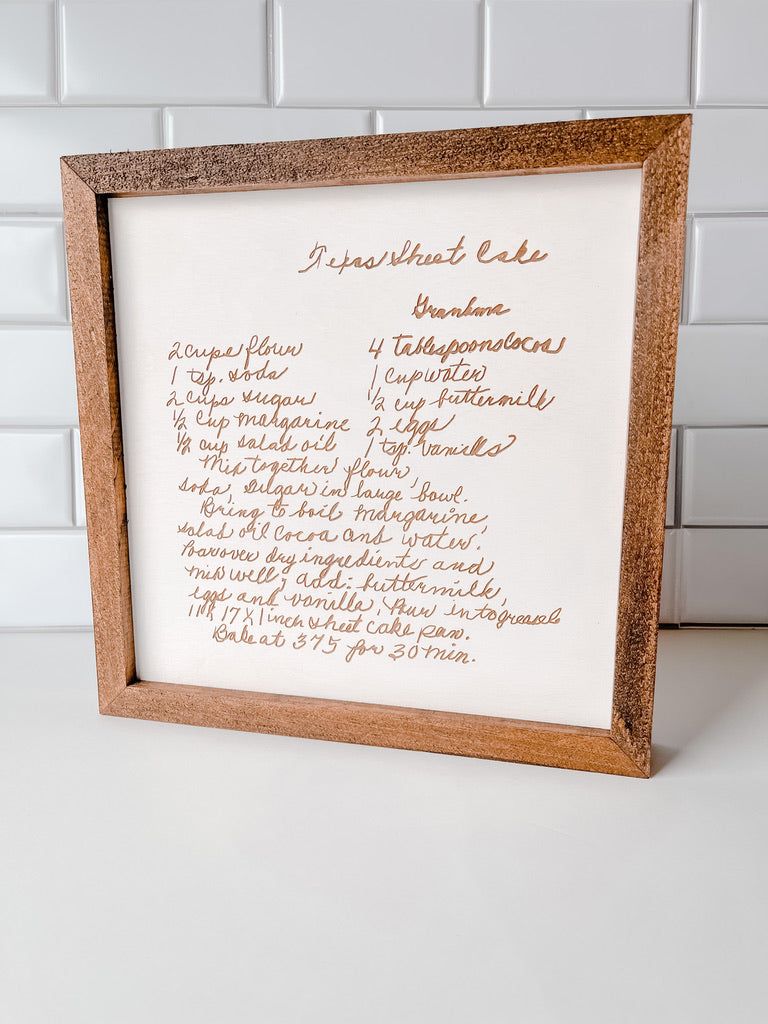 Texas Sheet Cake
Grandma
2 cups flour 4 tablespoons cocoa
1 tsp. soda 1 cup water
2 cups sugar 1/2 cup buttermilk
1/2 cup margarine 2 eggs
1/2 cup salad oil 1 tsp. vanilla
Mix together flour,
soda, sugar in large bowl.
Bring to boil margarine,
salad oil cocoa and water.
Pour over dry ingredients and
mix well, add: buttermilk,
eggs and vanilla, Pour into greased
11 X 17 X 1 inch sheet cake pan.
Bake at 375 for 30 min.